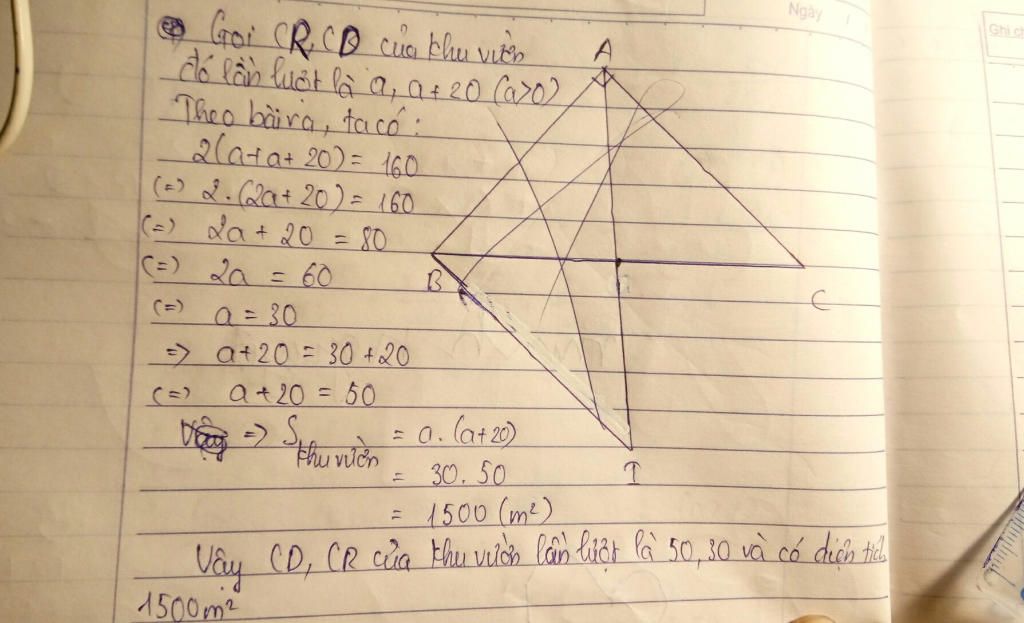 Ngày
Ghi ch
Gọi CR, CD của khu vườn
đó lần lượt là a, a+20 (a>0)
Theo bài ra, ta có:
2(a+a+20) = 160
(=) 2.(2a+20) = 160
(=) 2a + 20 = 80
(=) 2a = 60
(=) a = 30
=> a+20 = 30+20
(=) a+20 = 50
=> S khu vườn = a.(a+20)
= 30.50
= 1500 (m²)
Vậy CD, CR của khu vườn lần lượt là 50, 30 và có diện tích
1500m²
A
B
C
I